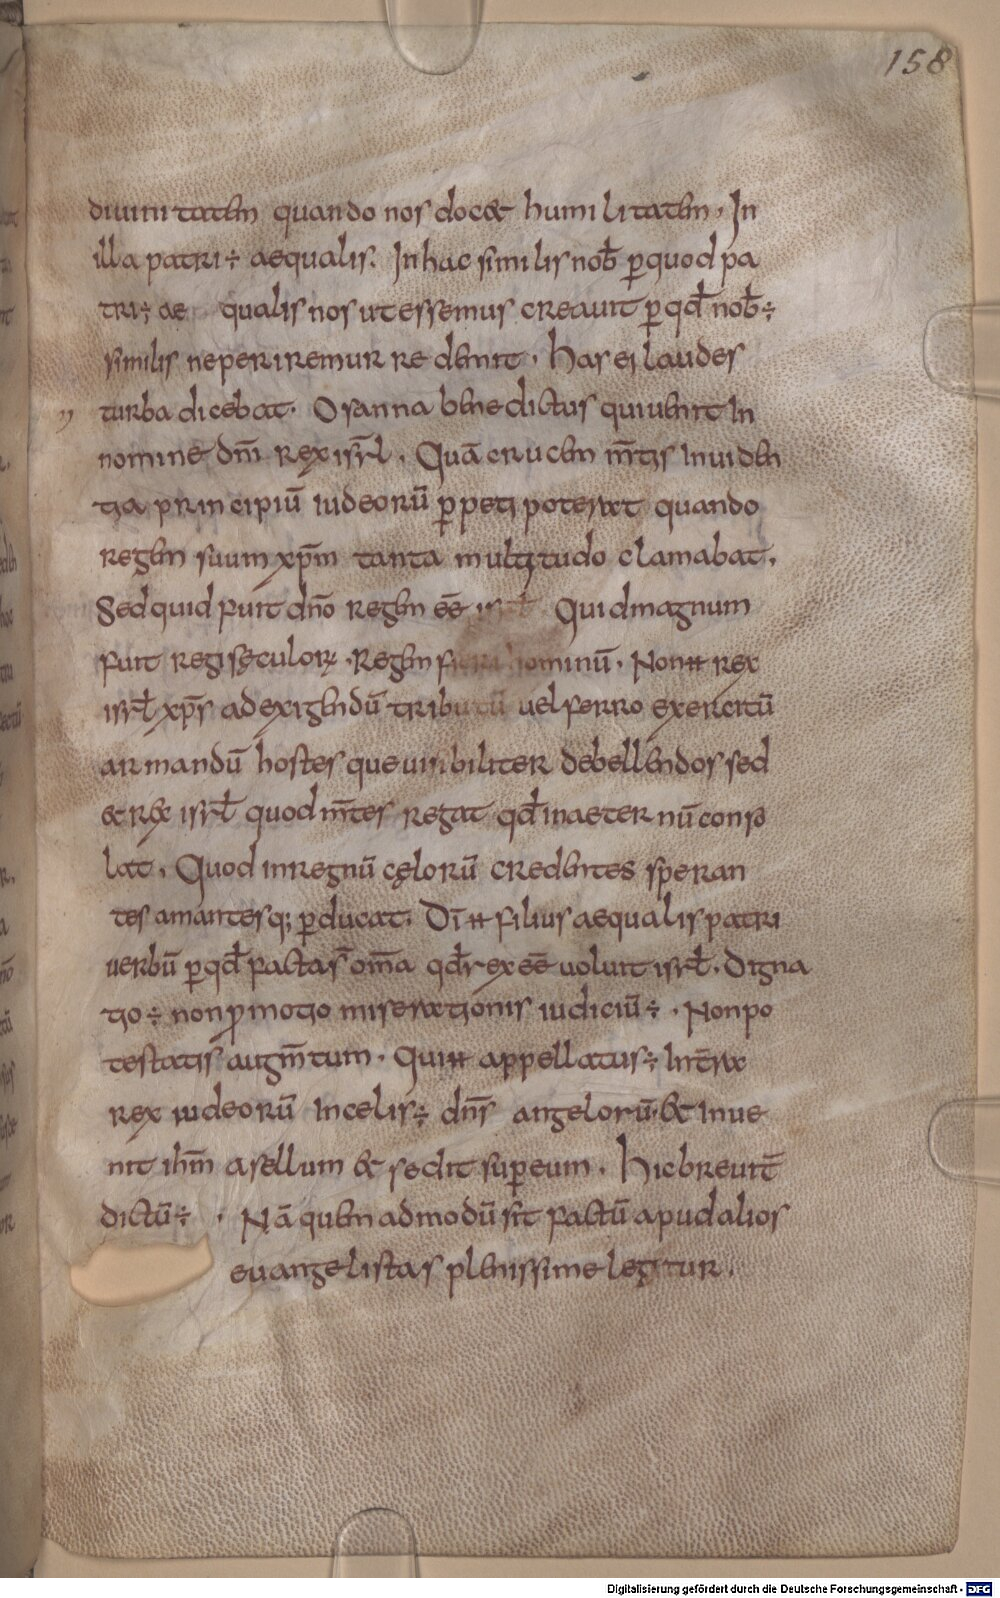 158
diuinitatem quando nos docet humilitatem. In
illa patri ÷ aequalis. In hac similis nob̄ ꝑ quod pa
tri ÷ ae qualis nos ut essemus creauit ꝑ qđ nob̄ ÷
similis ne periremur redemit. Has ei laudes
turba dicebat. Osanna benedictus qui uenit in
nomine dn̄i rex isrł. Quā crucem m̄tis inuiden
tia principiū iudeorū ꝑpeti poterat quando
regem suum xp̄m tanta multitudo clamabat.
Sed quid fuit dn̄o regem eē isrł Quid magnum
fuit regi sęculoꝝ. Regem fieri hominū. Non ħ rex
isrł xp̄s ad exigendū tributū uel ferro exercitū
armandū hostesque uisibiliter debellendos sed
et rex isrł quod m̄tes regat qđ in aeternū conso
lat. Quod in regnū cęlorū credentes speran
tes amantesq; ꝑducat. Dī ħ filius aequalis patri
uerbū ꝑ qđ facta s̄ om̄a qđ rex eē uoluit isrł. Digna
tio ÷ non ꝓmotio miserationis iudiciū ÷. Non po
testatis augm̄tum. Qui ħ appellatus ÷ in t̄ra
rex iudeorū in celis ÷ dn̄s angelorū. Et inue
nit ih̄m asellum et sedit suꝑ eum. Hic breuit̄
dictū ÷. Nā quem admodū sit factū apud alios
euangelistas plenissime legitur.
Digitalisierung gefördert durch die Deutsche Forschungsgemeinschaft - DFG